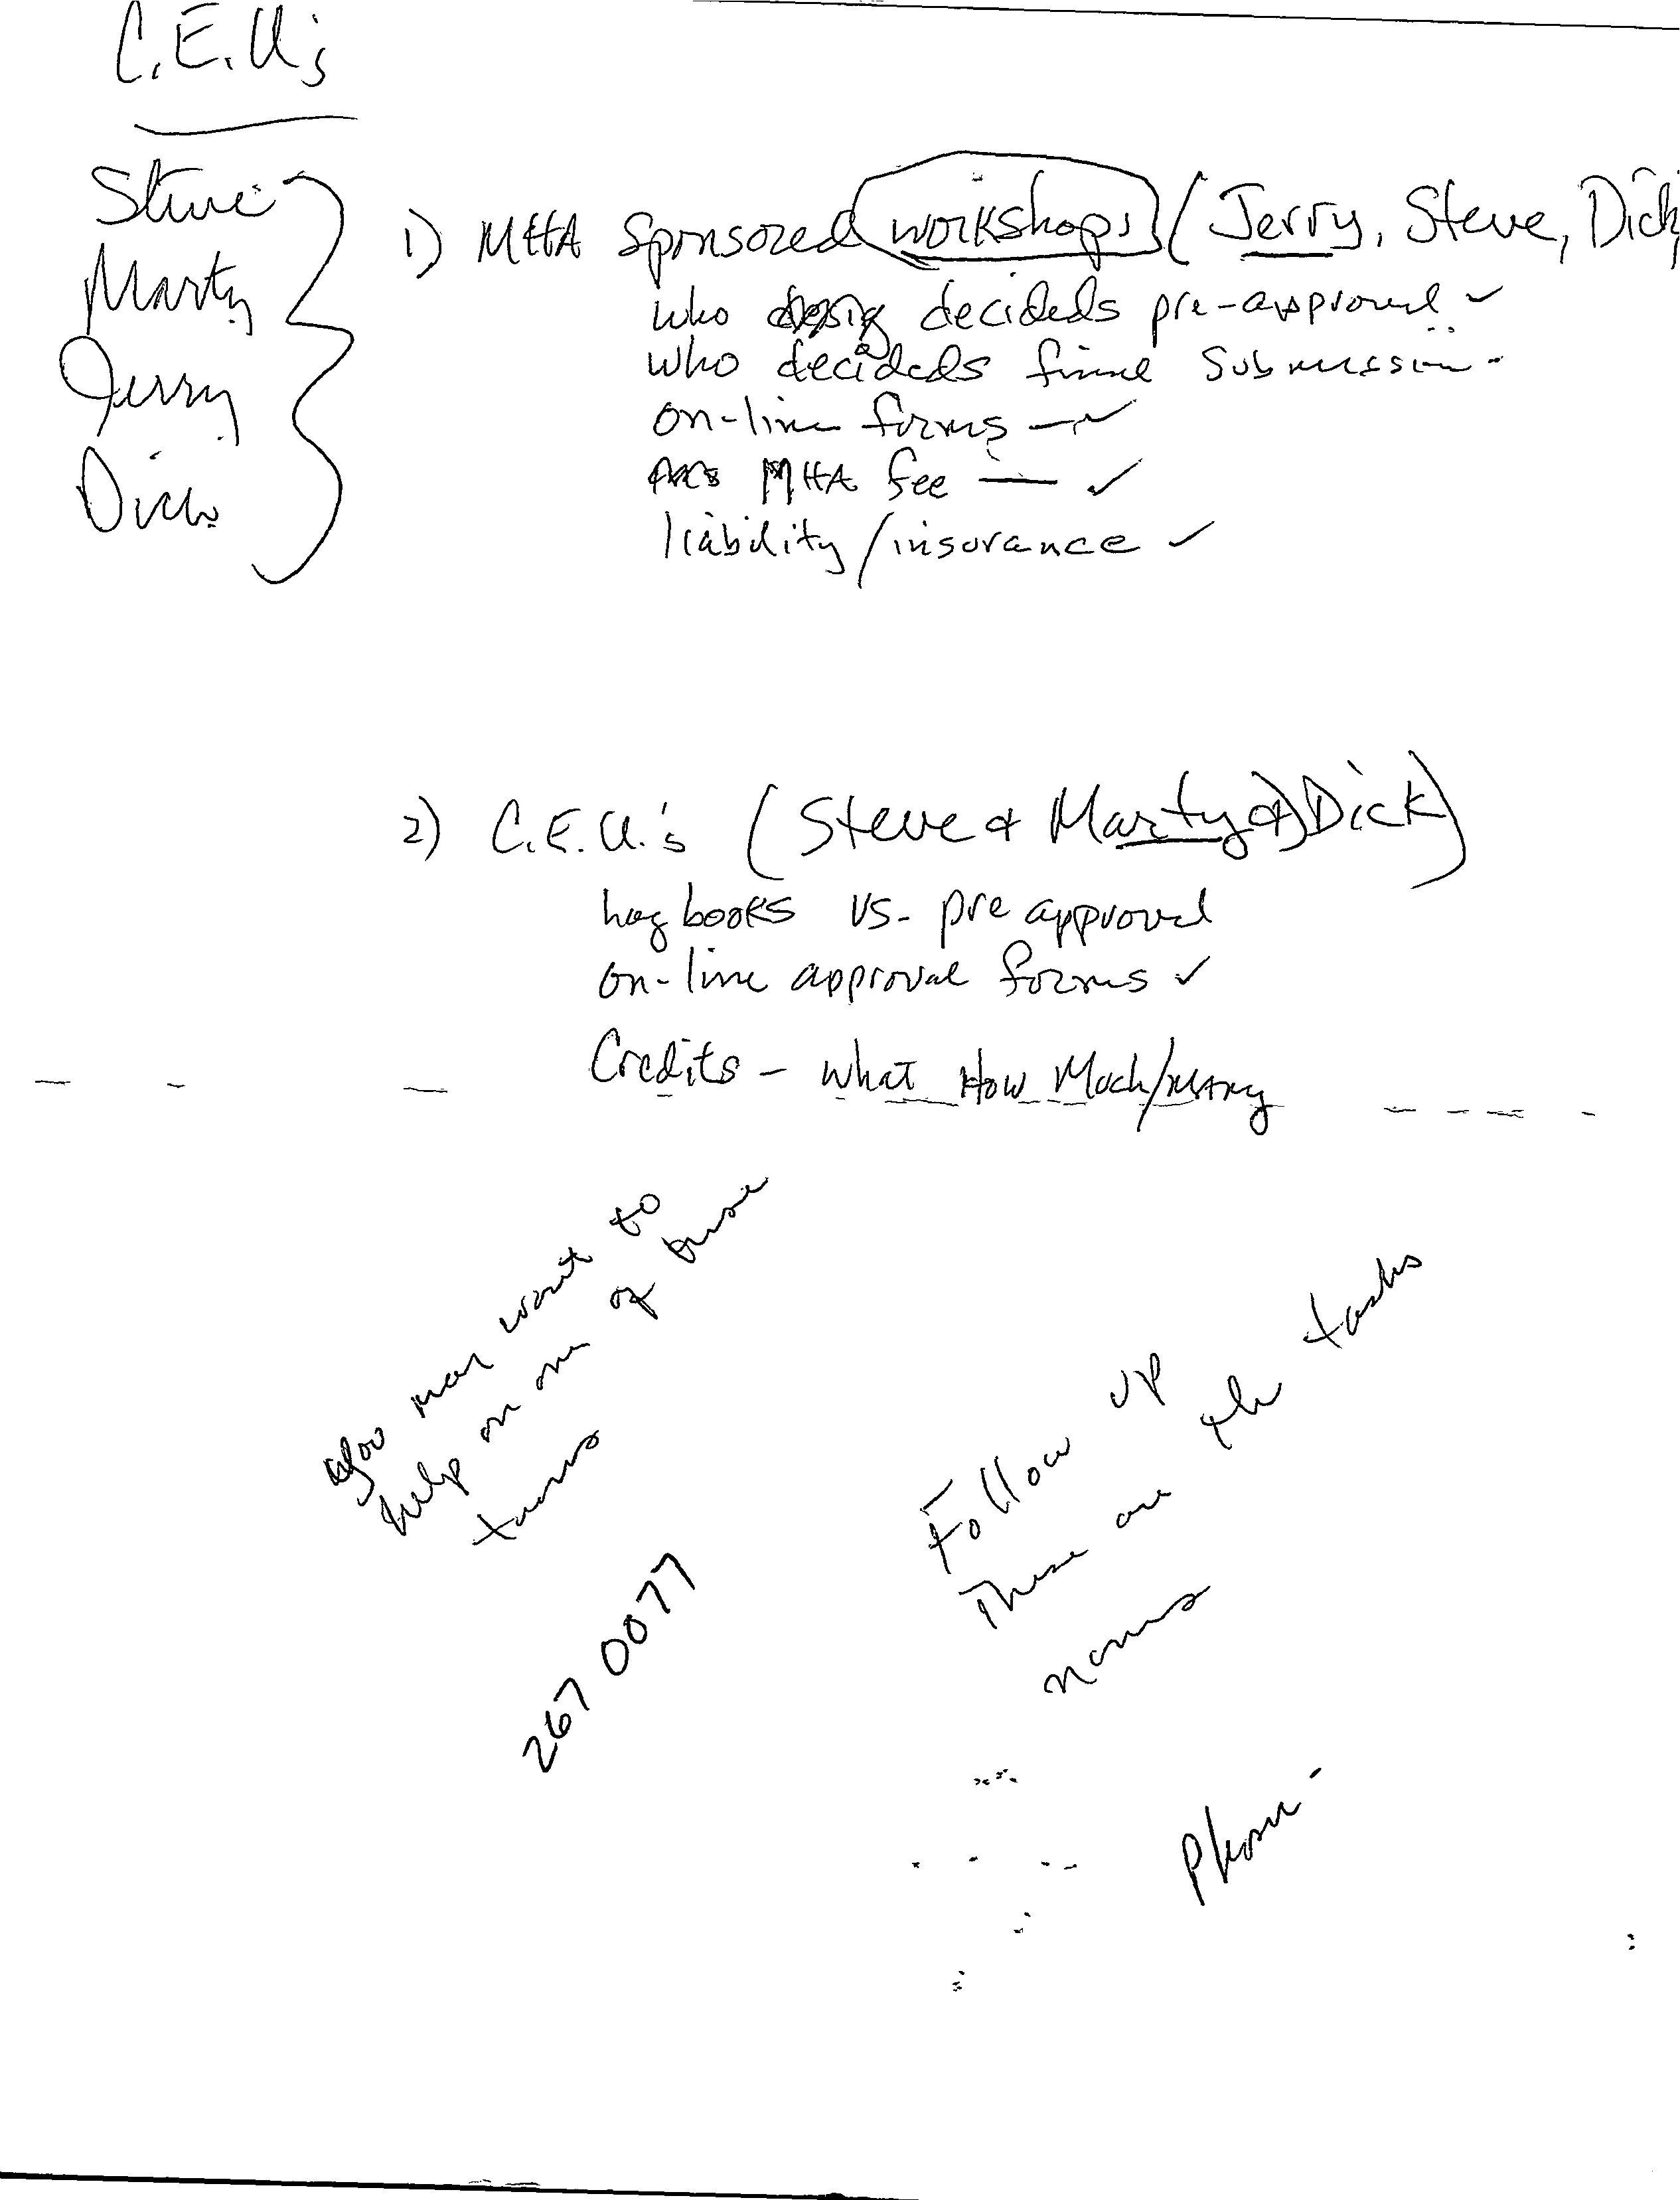 C.E.U.'s
Steve
Marty
Jerry
Dick
1) MHA Sponsored workshops (Jerry, Steve, Dick,
who decideds pre-approval ✓
who decideds final submission -
on-line forms — ✓
MHA fee — ✓
liability/insurance ✓
2) C.E.U.'s (Steve & Marty &) Dick)
log books vs. pre approval
on-line approval forms ✓
Credits - what How Much/many
you may want to
help on one of these
teams
267 0077
Follow up
These are the tasks
names
Phone